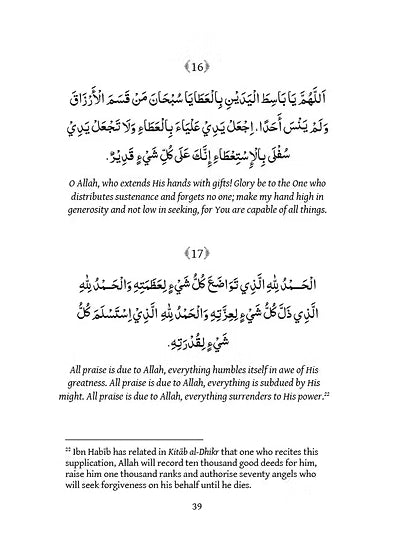 ﴾16﴿
اَللَّهُمَّ يَا بَاسِطَ الْيَدَيْنِ بِالْعَطَايَا سُبْحَانَ مَنْ قَسَمَ الْأَرْزَاقَ
وَلَمْ يَنْسَ أَحَدًا. اِجْعَلْ يَدِيْ عَلْيَاءَ بِالْعَطَاءِ وَلَا تَجْعَلْ يَدِيْ
سُفْلَى بِالْإِسْتِعْطَاءِ إِنَّكَ عَلَى كُلِّ شَيْءٍ قَدِيْرٌ.
O Allah, who extends His hands with gifts! Glory be to the One who
distributes sustenance and forgets no one; make my hand high in
generosity and not low in seeking, for You are capable of all things.
﴾17﴿
الْحَمْدُ لِلهِ الَّذِي تَوَاضَعَ كُلُّ شَيْءٍ لِعَظَمَتِهِ وَالْحَمْدُ لِلهِ
الَّذِي ذَلَّ كُلُّ شَيْءٍ لِعِزَّتِهِ وَالْحَمْدُ لِلهِ الَّذِيْ اِسْتَسْلَمَ كُلُّ
شَيْءٍ لِقُدْرَتِهِ.
All praise is due to Allah, everything humbles itself in awe of His
greatness. All praise is due to Allah, everything is subdued by His
might. All praise is due to Allah, everything surrenders to His power.²²
²² Ibn Ḥabīb has related in Kitāb al-Dhikr that one who recites this
supplication, Allah will record ten thousand good deeds for him,
raise him one thousand ranks and authorise seventy angels who
will seek forgiveness on his behalf until he dies.
39